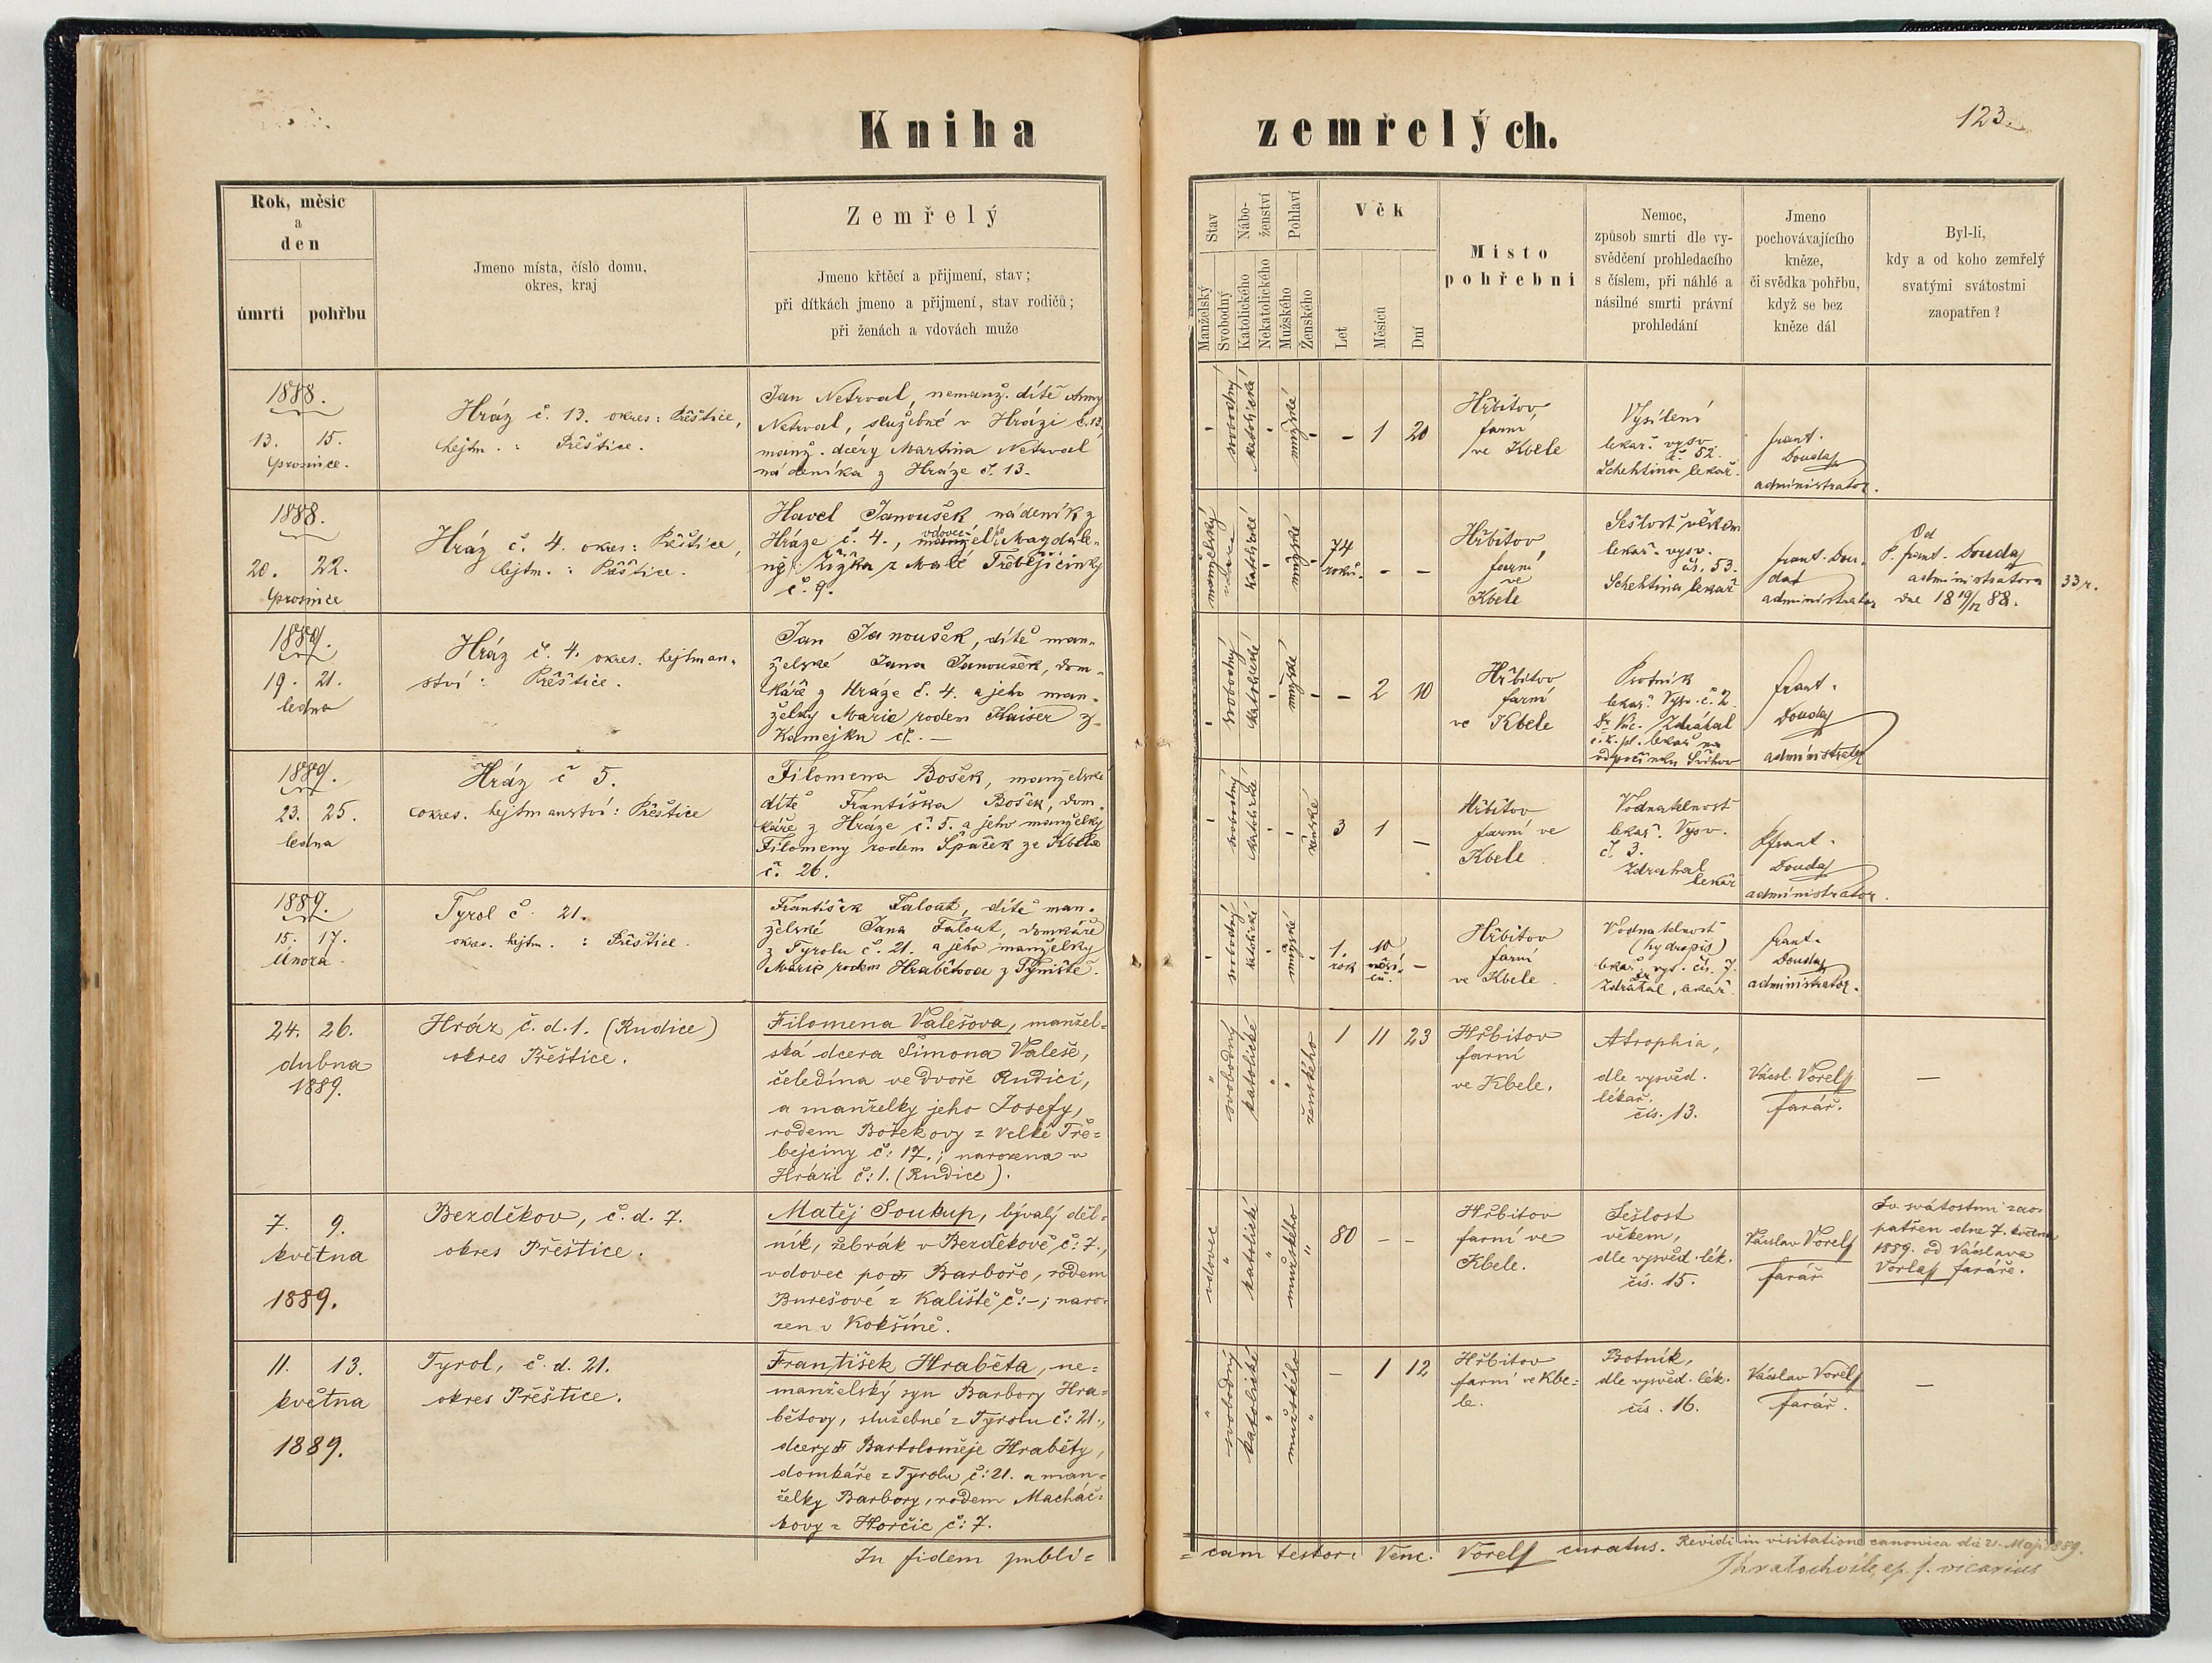 Kniha zemřelých.
123.
Rok, měsíc
a
den
úmrtí
pohřbu
Jmeno místa, číslo domu,
okres, kraj
Zemřelý
Jmeno křtěcí a přijmení, stav;
při dítkách jmeno a přijmení, stav rodičů;
při ženách a vdovách muže
Stav
Manželský
Svobodný
Nábo-
ženství
Katolického
Nekatolického
Pohlaví
Mužského
Ženského
Věk
Let
Měsíců
Dní
Místo
pohřební
Nemoc,
způsob smrti dle vy-
svědčení prohledacího
s číslem, při náhlé a
násilné smrti právní
prohledání
Jmeno
pochovávajícího
kněze,
či svědka pohřbu,
když se bez
kněze dál
Byl-li,
kdy a od koho zemřelý
svatými svátostmi
zaopatřen?
1888.
13. 15.
prosince.
Hráz č. 13. okres: Přeštice,
hejtm. : Přeštice.
Jan Netrval, nemanž. dítě Anny
Netrval, služebné v Hrázi č. 13,
manž. dcery Martina Netrval
nádeníka z Hráze č. 13.
svobodný
katolické
mužské
- 1 20
Hřbitov
farní
ve Kbele
Vysílení
lékař. vysv.
č. 52.
Schehtina lékař.
frant.
Douda
administrator.
1888.
20. 22.
prosince
Hráz č. 4. okres: Přeštice,
hejtm. : Přeštice.
Havel Janoušek nádeník z
Hráze č. 4., vdovec Magdale-
ny Žižka z Malé Třebejčinky
č. 9.
manželský
katolické
mužské
74
roků. - -
Hřbitov
farní
ve
Kbele
Sešlost věkem
lékař. vysv.
čís. 53.
Schehtina lékař
frant. Dou-
da
administrator
Od
P. frant. Douda
administratora
dne 18 19/12 88.
33 r.
1889.
19. 21.
ledna
Hráz č. 4. okres. hejtman-
ství: Přeštice.
Jan Janoušek, dítě man-
želské Jana Janoušek, dom-
káře z Hráze č. 4. a jeho man-
želky Marie rodem Kaiser z
Kamejku č. —
svobodný
katolické
mužské
- 2 10
Hřbitov
farní
ve Kbele
Psotník
lékař. Vysv. č. 2
Dr Vác. Zdráhal
c. k. pl. lékař na
odpočinku Švihov
frant.
Douda
administrator
1889.
23. 25.
ledna
Hráz č 5.
okres. hejtmanství: Přeštice
Filomena Bošek, manželské
dítě Františka Bošek, dom-
káře z Hráze č. 5. a jeho manželky
Filomeny rodem Špaček ze Kbela
č. 26.
svobodný
katolické
ženské
3 1 —
Hřbitov
farní ve
Kbele
Vodnatelnost
lékař. Vysv.
č. 3.
Zdrahal
lékař
frant.
Douda
administrator.
1889.
15. 17.
Února
Tyrol č. 21.
okres. hejtm. : Přeštice.
František Falout, dítě man-
želské Jana Falout, domkáře
z Tyrolu č. 21. a jeho manželky
Marie rodem Hrabětova z Týniště.
svobodný
katolické
mužské
1. 10 —
rok měsí-
ců.
Hřbitov
farní
ve Kbele
Vodnatelnost
(hydropis)
lékař. vys. čís. 7.
Dr
Zdráhal, lékař.
frant.
Douda
administrator.
24. 26.
dubna
1889.
Hráz č. d. 1. (Rudice)
okres Přeštice.
Filomena Valešova, manžel-
ská dcera Šimona Valeše,
čeledína ve dvoře Rudici,
a manželky jeho Josefy,
rodem Boškovy z Velké Tře-
bejciny č: 17.; narozena v
Hrázi č: 1. (Rudice).
svobodný
katolické
ženského
1 11 23
Hřbitov
farní
ve Kbele.
Atrophia,
dle vysvěd.
lékař.
čís. 13.
Vácsl. Vorel
farář.
—
7. 9.
května
1889.
Bezděkov, č. d. 7.
okres Přeštice.
Matěj Soukup, bývalý děl-
ník, žebrák v Bezděkově č: 7.,
vdovec po † Barboře, rodem
Burešové z Kaliště č: -; naro-
zen v Kokšíně.
vdovec
katolické
mužského
80 - -
Hřbitov
farní ve
Kbele.
Sešlost
věkem,
dle vysvěd. lék.
čís. 15.
Václav Vorel
farář
Sv. svátostmi zao-
patřen dne 7. května
1889. od Václava
Vorla faráře.
11. 13.
května
1889.
Tyrol, č. d. 21.
okres Přeštice.
František Hraběta, ne-
manželský syn Barbory Hra-
bětovy, služebné z Tyrolu č: 21.,
dcery † Bartoloměje Hraběty,
domkáře z Tyrolu č: 21. a man-
želky Barbory, rodem Macháč-
kovy z Horčic č: 7.
svobodný
katolické
mužského
- 1 12
Hřbitov
farní ve Kbe-
le.
Psotník,
dle vysvěd. lék.
čís. 16.
Václav Vorel
farář.
—
In fidem publi-
-cam testor: Venc. Vorel curatus. Revidi in visitatione canonica die 21. Maji 1889.
Skratochvile, ep. f. vicarius